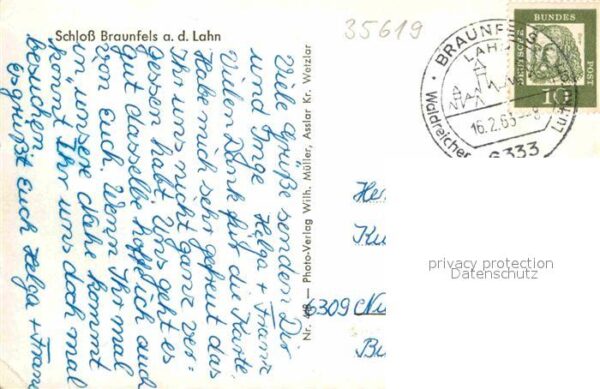 35619
Schloß Braunfels a. d. Lahn
Viele Grüße senden Dir
und Inge Helga + Franz
Vielen Dank für die Karte.
Habe mich sehr gefreut das
Ihr uns nicht ganz ver-
gessen habt. Uns geht es
gut dasselbe hoffe ich auch
von euch. Wenn Ihr mal
in unsere Nähe kommt
kommt Ihr uns doch mal
besuchen.
Es grüßt Euch Helga + Franz
Nr. 448 — Photo-Verlag Wilh. Müller, Asslar Kr. Wetzlar
BRAUNFELS
LAHN
16.2.63-8
Waldreicher
Luft
6333
DEUTSCHE
BUNDES
POST
10
6309
privacy protection
Datenschutz